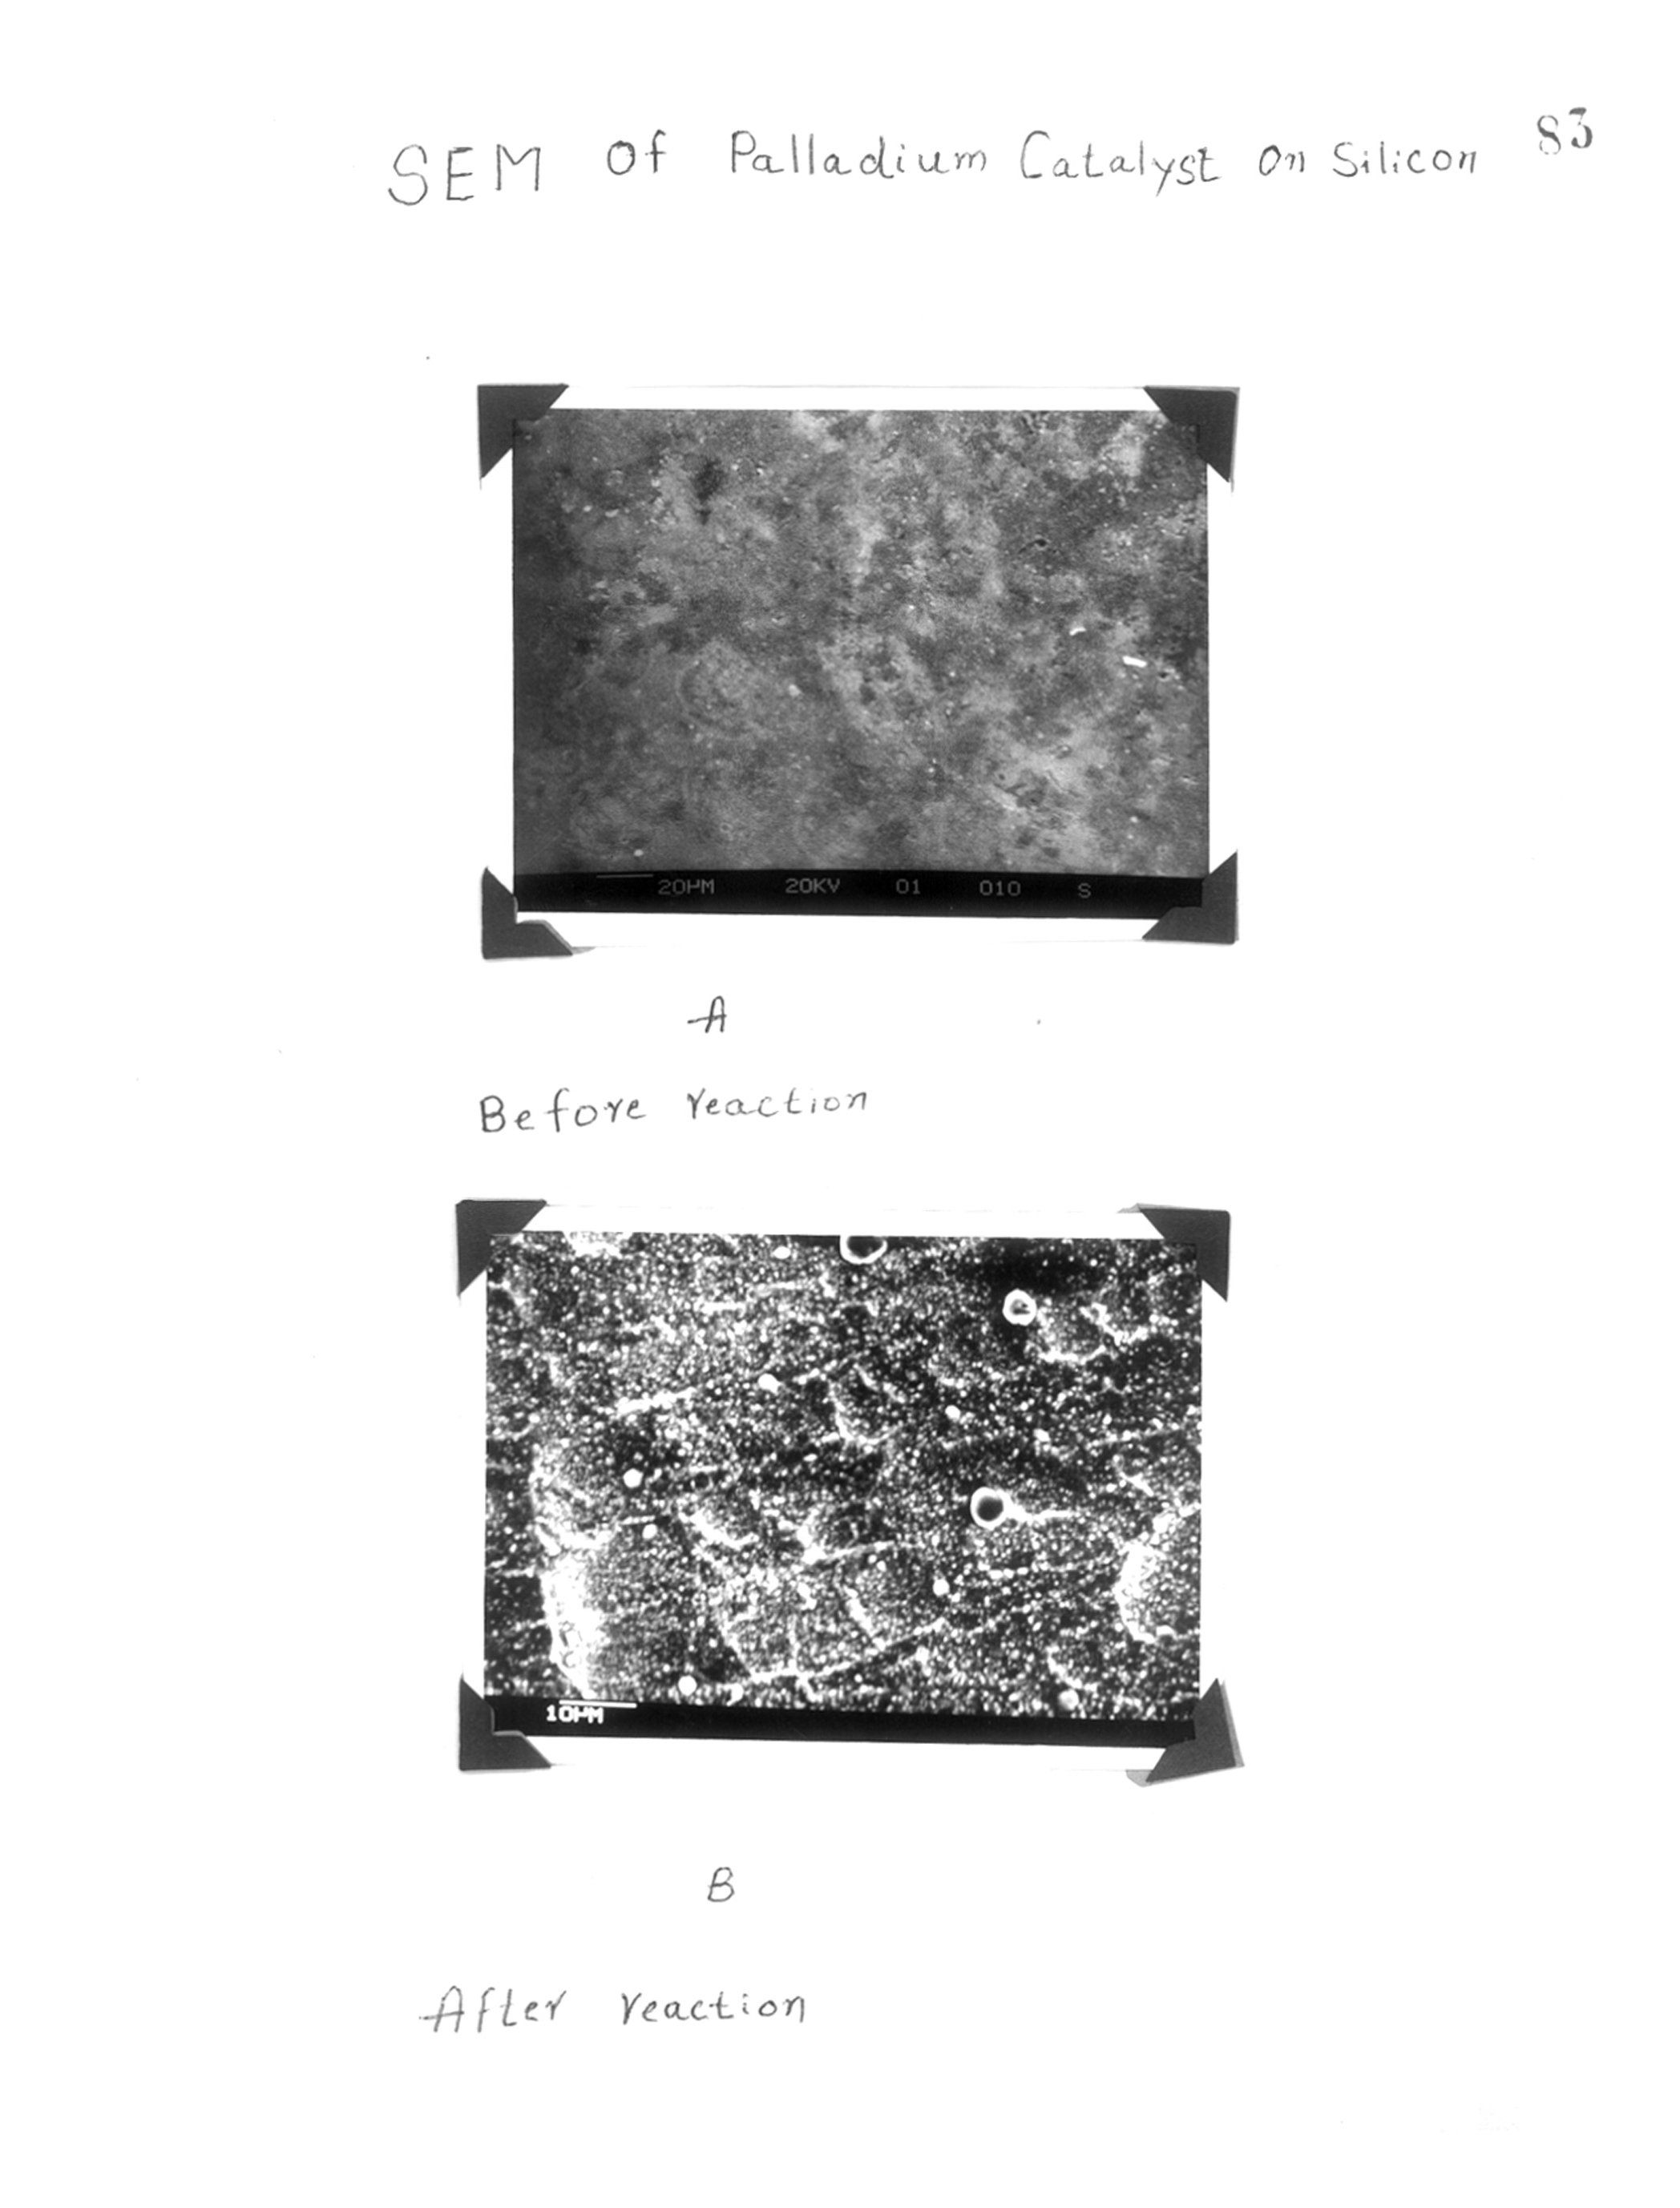 83
SEM Of Palladium Catalyst On Silicon
20µM 20KV 01 010 S
A
Before reaction
10µM
B
After reaction